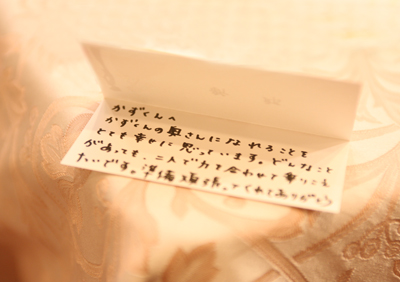 かずくんへ
かずくんの奥さんになれることを
とても幸せに思っています。どんなこと
があっても、二人で力を合わせて乗りこえ
たいです。準備頑張ってくれてありがとう